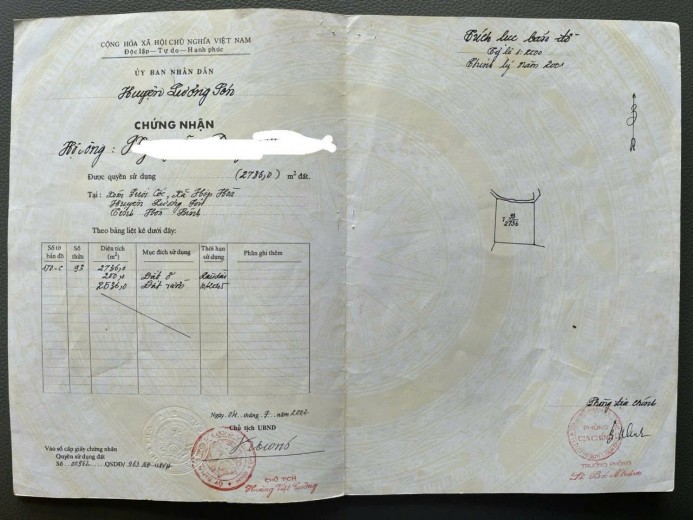 CỘNG HÒA XÃ HỘI CHỦ NGHĨA VIỆT NAM
Độc lập—Tự do—Hạnh phúc
ỦY BAN NHÂN DÂN
Huyện Lương Sơn
CHỨNG NHẬN
Hộ ông :
Được quyền sử dụng (2736,0) m² đất.
Tại : Xóm Suối Cốc, Xã Hợp Hoà
Huyện Lương Sơn
Tỉnh Hoà Bình
Theo bảng liệt kê dưới đây:
Số tờ bản đồ Số thửa Diện tích (m²) Mục đích sử dụng Thời hạn sử dụng Phần ghi thêm
170-C 93 2736,0
200,0 Đất ở Lâu dài
2536,0 Đất vườn
Ngày 04 tháng 7 năm
Chủ tịch UBND
CHỦ TỊCH
Hoàng Việt Cường
Vào sổ cấp giấy chứng nhận
Quyền sử dụng đất
Số QSDĐ/
Trích lục bản đồ
Tỷ lệ 1:
Chỉnh lý năm 2001
T 93
2736
Phòng địa chính
PHÒNG
ĐỊA CHÍNH
TRƯỞNG PHÒNG